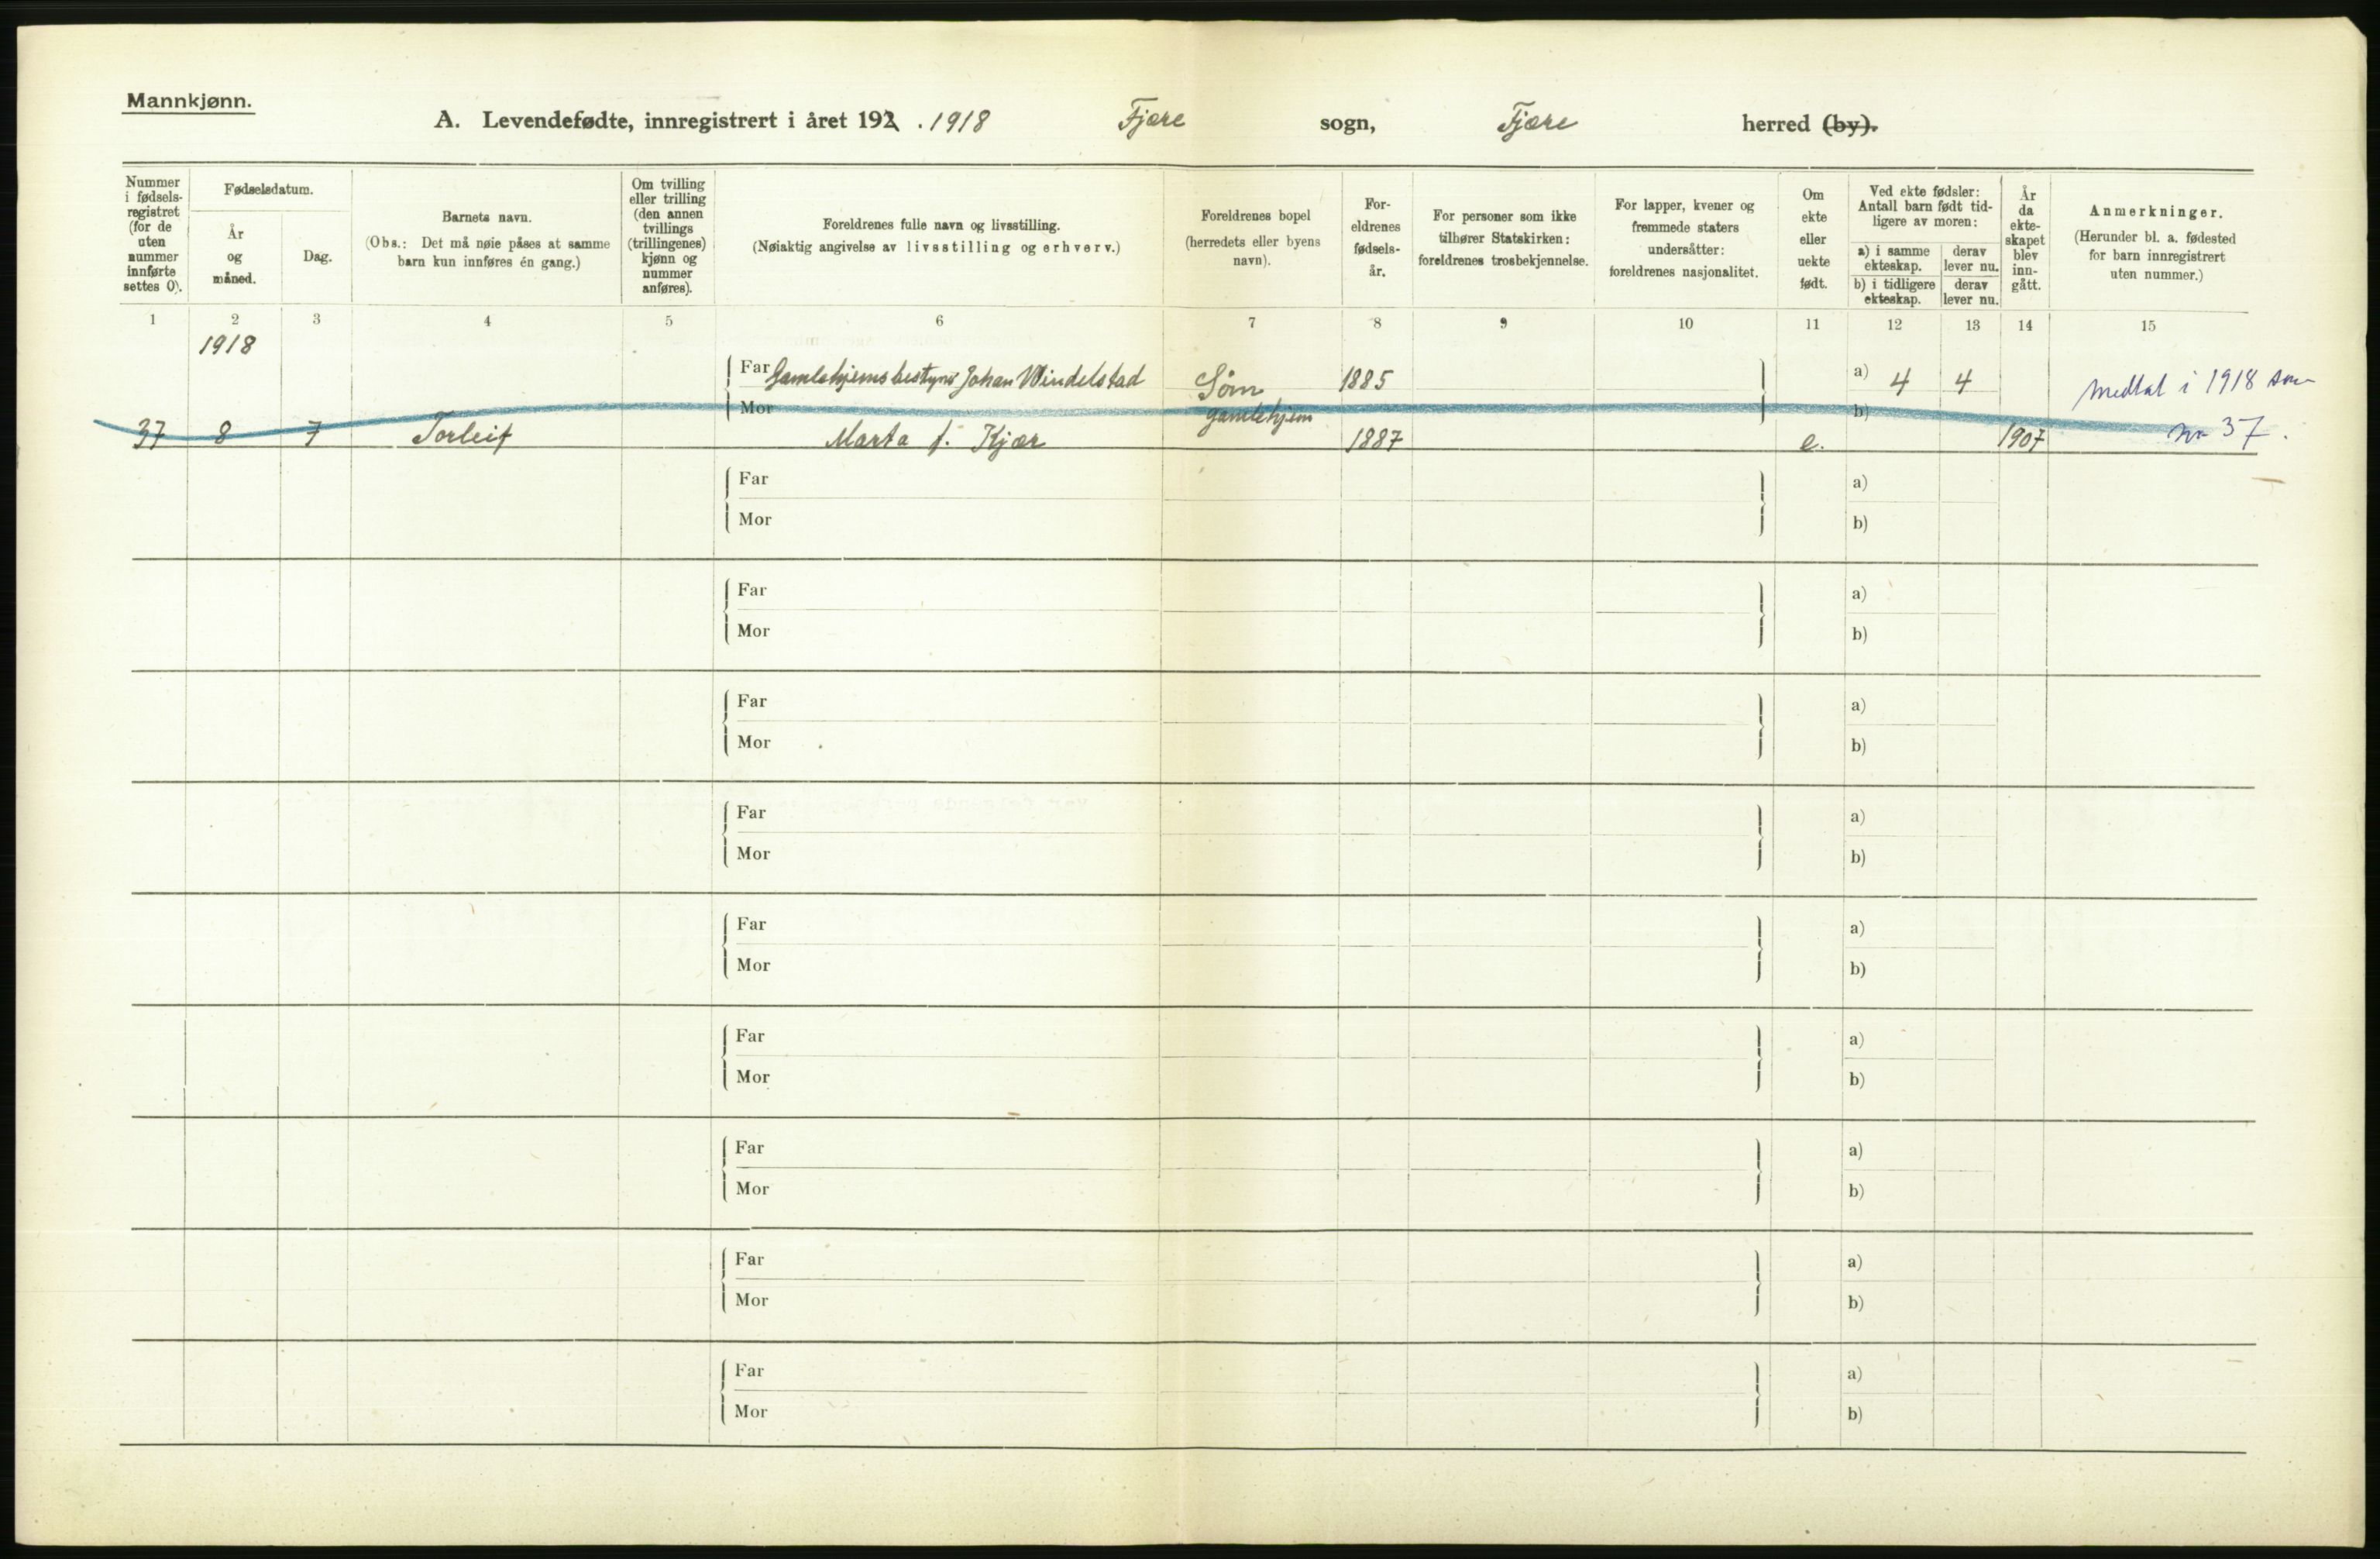 Mannkjønn.
A. Levendefødte, innregistrert i året 192 . 1918 Fjære sogn, Fjære herred (by).
Nummer
i fødsels-
registret
(for de
uten
nummer
innførte
settes 0).
Fødselsdatum.
År
og
måned.
Dag.
Barnets navn.
(Obs.: Det må nøie påses at samme
barn kun innføres én gang.)
Om tvilling
eller trilling
(den annen
tvillings
(trillingenes)
kjønn og
nummer
anføres).
Foreldrenes fulle navn og livsstilling.
(Nøiaktig angivelse av livsstilling og erhverv.)
Foreldrenes bopel
(herredets eller byens
navn).
For-
eldrenes
fødsels-
år.
For personer som ikke
tilhører Statskirken:
foreldrenes trosbekjennelse.
For lapper, kvener og
fremmede staters
undersåtter:
foreldrenes nasjonalitet.
Om
ekte
eller
uekte
født.
Ved ekte fødsler:
Antall barn født tid-
ligere av moren:
a) i samme
ekteskap.
derav
lever nu.
b) i tidligere
ekteskap.
derav
lever nu.
År
da
ekte-
skapet
blev
inn-
gått.
Anmerkninger.
(Herunder bl. a. fødested
for barn innregistrert
uten nummer.)
1 2 3 4 5 6 7 8 9 10 11 12 13 14 15
1918
Far Gamlehjemsbestyrer Johan Windelstad Søm 1885 a) 4 4 Medtal i 1918 som
Mor gamlehjem b)
37 8 7 Torleif Marta f. Kjær 1887 e. 1907 nr 37.
Far a)
Mor b)
Far a)
Mor b)
Far a)
Mor b)
Far a)
Mor b)
Far a)
Mor b)
Far a)
Mor b)
Far a)
Mor b)
Far a)
Mor b)
Far a)
Mor b)